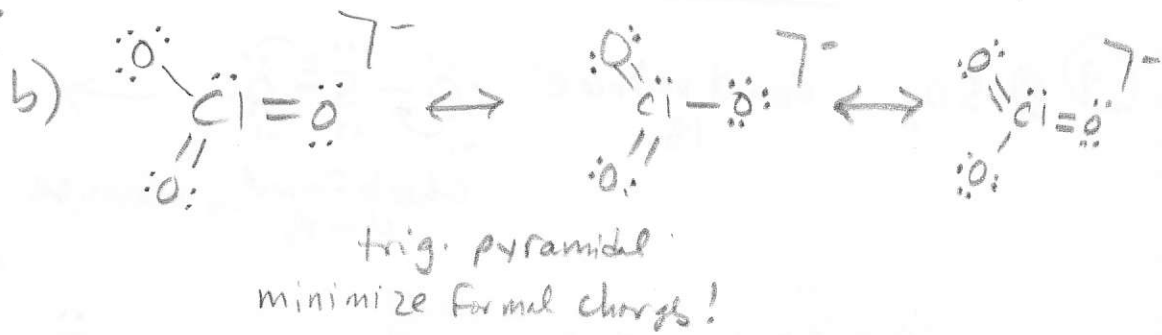 b) O Cl = O ]⁻ ↔ O Cl — O ]⁻ ↔ O Cl = O ]⁻
O O O
trig. pyramidal
minimize formal charges!